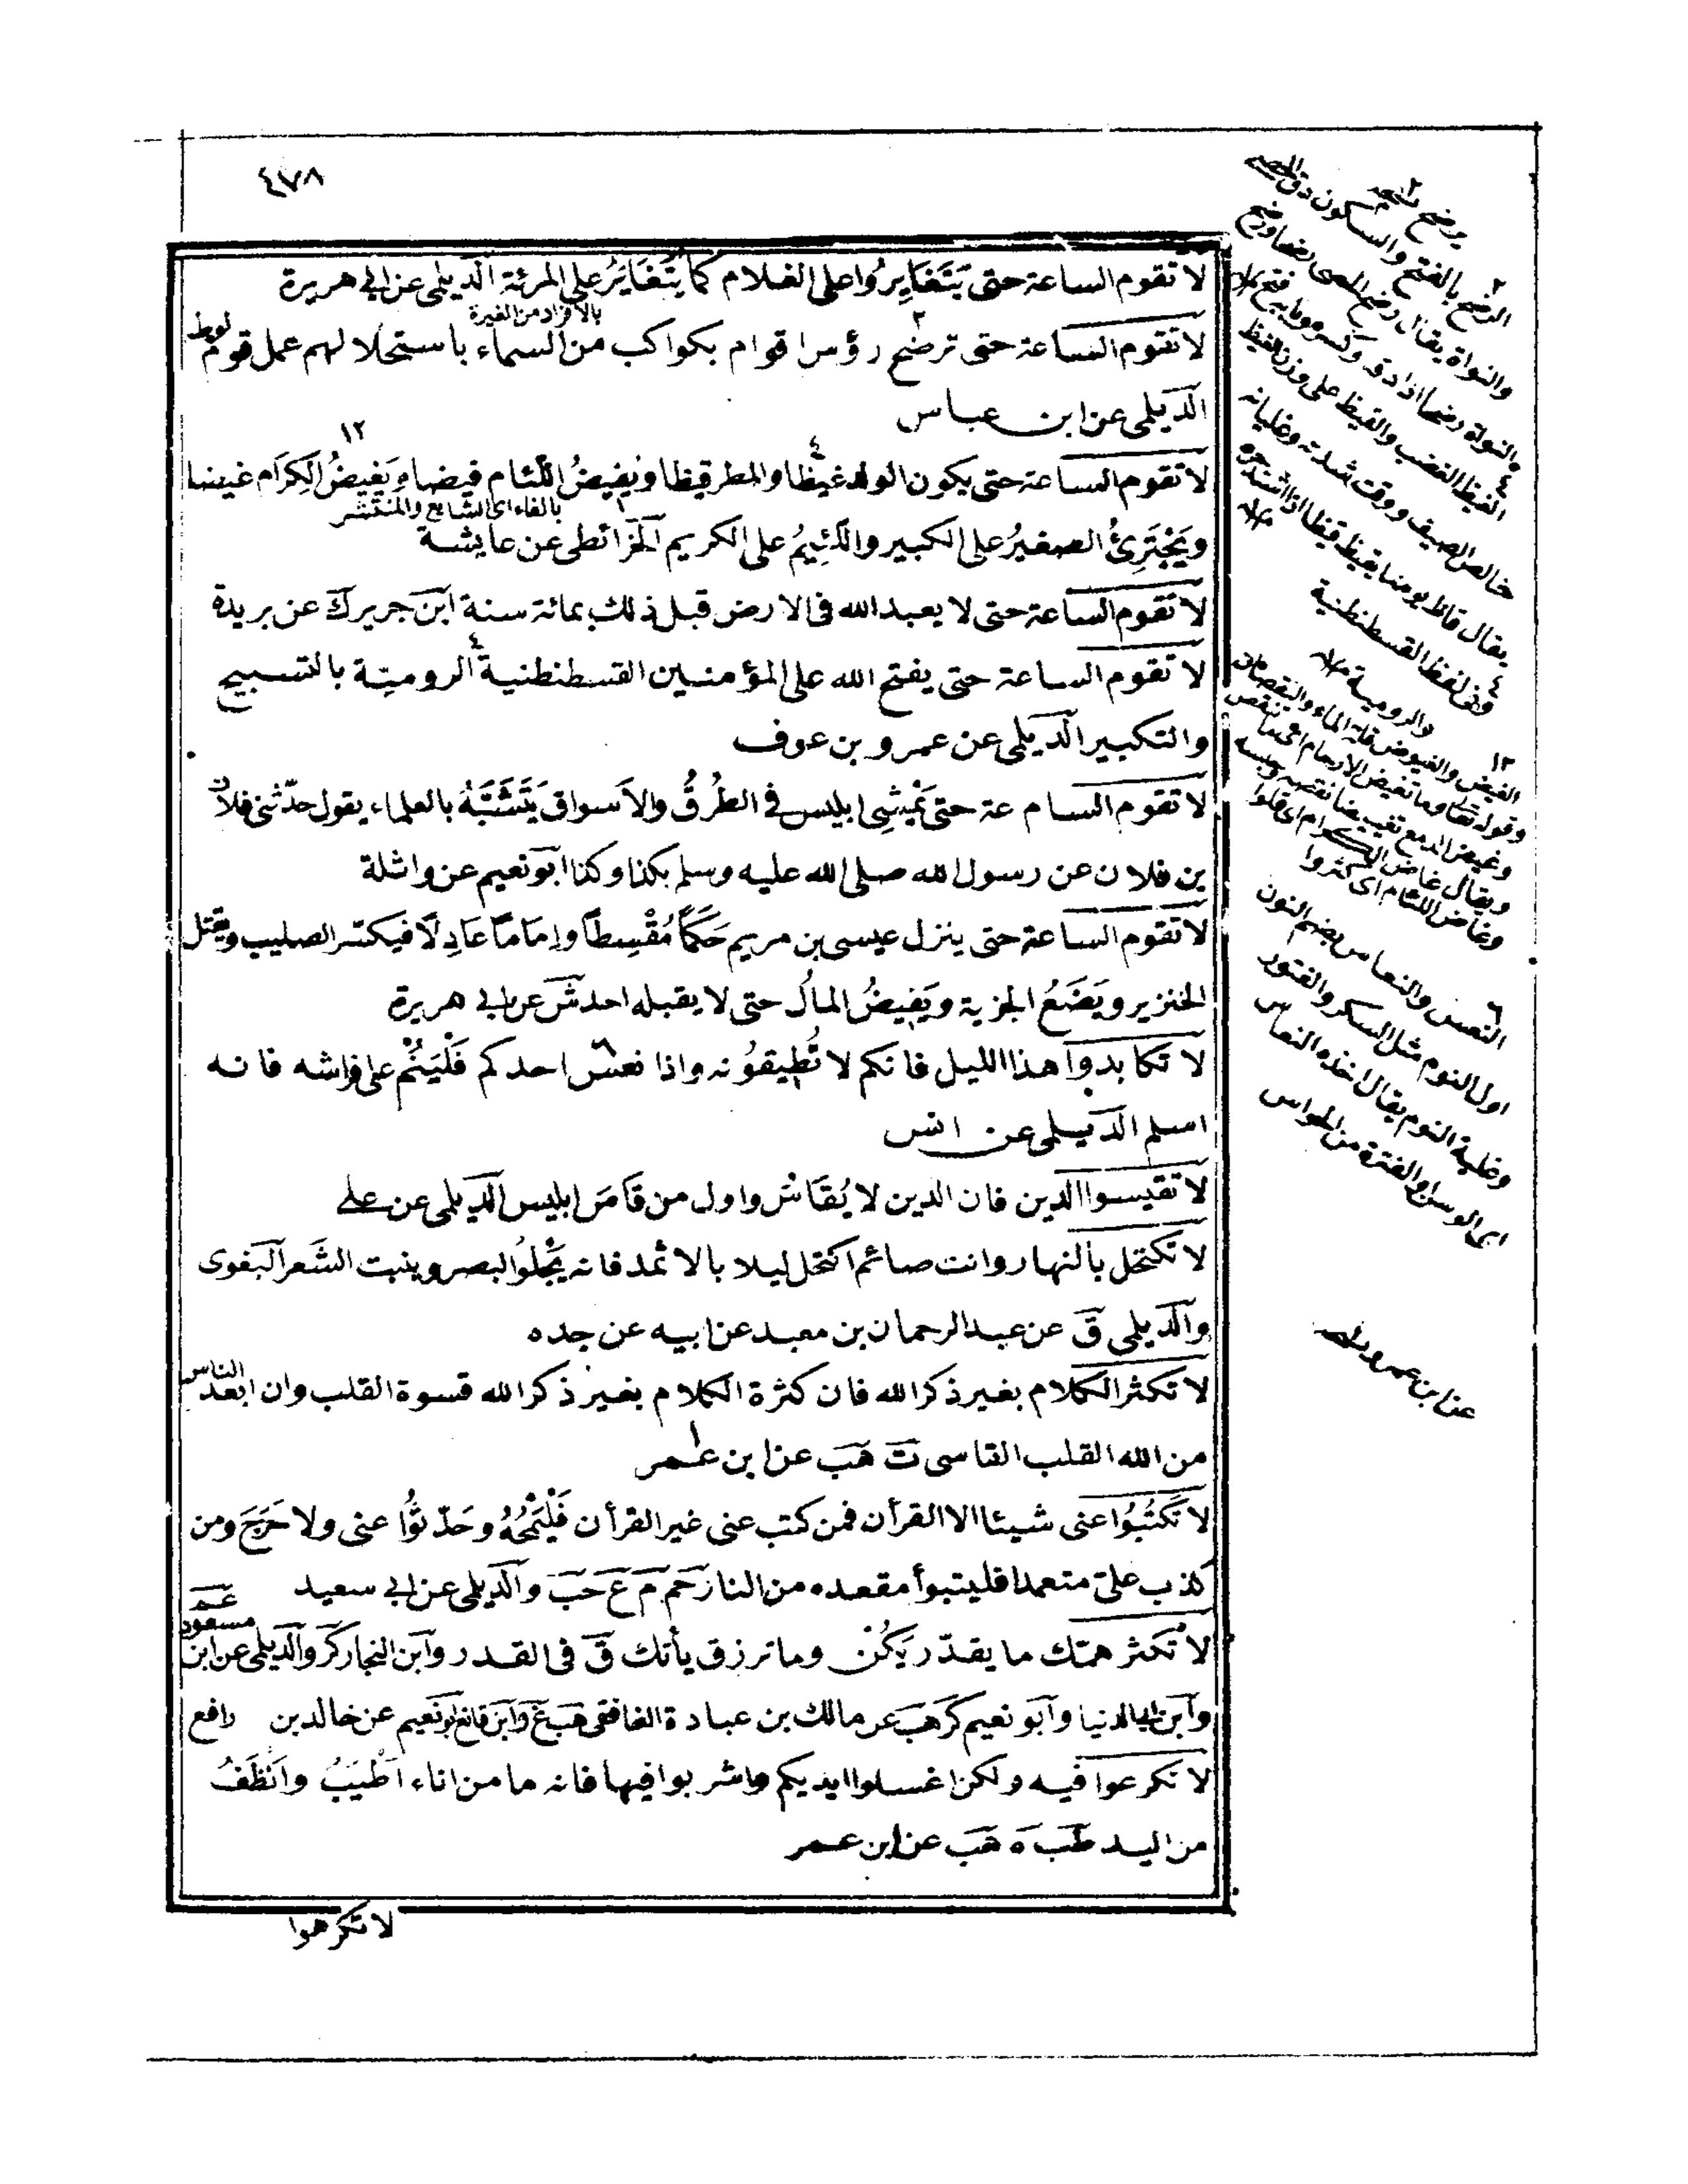 ٤٧٨
لا تقوم الساعة حتى يَتَغَايَرُوا على الغلام كما يُتَغَايَرُ على المرئة الديلمى عن ابى هريرة
بالافراد من الغيرة
لا تقوم الساعة حتى ترضح رؤس اقوام بكواكب من السماء باستحلالهم عمل قوم لوط
الديلمى عن ابن عباس
لا تقوم الساعة حتى يكون الولد غيظا والمطر قيظا ويفيضُ اللّئام فيضا وَيَغِيضُ الكِرَام غيضا
بالفاء اى الشايع والمنتشر
ويَجْتَرِئُ الصغيرُ على الكبير واللّئِيمُ على الكريم الخرائطى عن عايشة
لا تقوم الساعة حتى لا يعبد الله فى الارض قبل ذلك بمائة سنة ابن جرير ك عن بريدة
لا تقوم الساعة حتى يفتح الله على المؤمنين القسطنطنية الروميّة بالتسبيح
والتكبير الديلمى عن عمرو بن عوف
لا تقوم الساعة حتى يَمْشِى ابليس فى الطُرُقُ والاَسواق يَتَشَبَّهُ بالعلماء يقول حدّثنى فلان
بن فلان عن رسول الله صلى الله عليه وسلم بكذا وكذا ابو نعيم عن واثلة
لا تقوم الساعة حتى ينزل عيسى بن مريم حَكَمًا مُقْسِطًا واِمَامًا عَادِلًا فيكسر الصليب ويقتل
الخنزير ويَضَعُ الجزية ويَفِيضُ المالُ حتى لا يقبله احد ش عن ابى هريرة
لا تكابدوا هذا الليل فانكم لا تُطِيقوُنه واذا نعس احدكم فَلْيَنُمْ على فراشه فانه
اسلم الديلمى عن انس
لا تقيسوا الدين فان الدين لا يُقَاسُ واول من قَاسَ ابليس الديلمى عن على
لا تكتحل بالنهار وانت صائم اكتحل ليلا بالاثمد فانه يَجْلوُ البصر وينبت الشَعر البغوى
والديلمى ق عن عبد الرحمان بن معبد عن ابيه عن جده
لا تكثر الكلام بغير ذكر الله فان كثرة الكلام بغير ذكر الله قسوة القلب وان ابعد الناس
من الله القلب القاسى ت هب عن ابن عمر
لا تَكْتُبُوا عنى شيئا الا القرأن فمن كتب عنى غير القرأن فَلْيَمْحُهُ وحَدّثُوا عنى ولا حَرَجَ ومن
كذب علىّ متعمدا فليتبوأ مقعده من النار حم م ع حب والديلمى عن ابى سعيد
لا تكثر همّك ما يقدّر يَكُنْ وما ترزق يأتك ق فى القدر وابن النجار كر والديلمى عن ابن مسعود
وابن ابى الدنيا وابو نعيم كر هب عن مالك بن عبادة الغافقى هب غ وابن قانع ابو نعيم عن خالد بن رافع
لا تكرعوا فيه ولكن اغسلوا ايديكم واشربوا فيها فانه ما من اناء اَطْيَبُ واَنظَفُ
من اليد طب ه هب عن ابن عمر
لا تكرهوا
والنواة يقال رضح الحصى
الغيظ الغضب والقيظ على وزن الغيظ
خالص الصيف ووقت شدته وغليانه
يقال قاظ يومنا يقيظ قيظا اذا اشتد حره
وفى لفظ القسطنطنية
والرومية
الغيض والغيوض قلة الماء والنقصان
ويقال غاض الكرام اى قلوا
وغاض اللئام اى كثروا
النعس والنعاس بضم النون
اول النوم مثل السكر والفتور
وغلبة النوم يقال اخذه النعاس
اى الوسن والفترة من الحواس
عن ابن عمرو